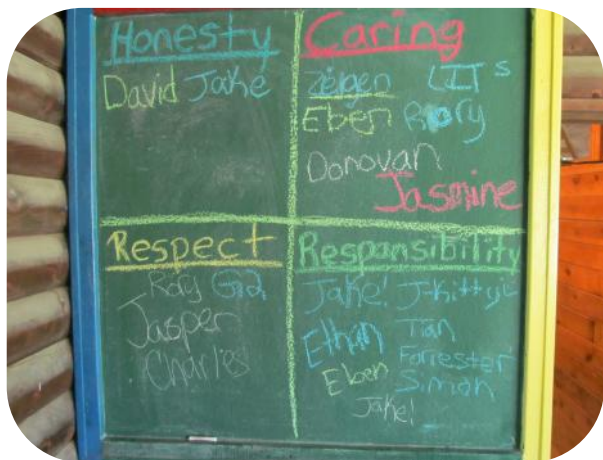 Honesty
David Jake
Caring
Zeigen LITs
Eben Rory
Donovan
Jasmine
Respect
Rory
Jasper
Charles
Responsibility
Jake! J-Kitty
Ethan Tian
Forrester
Eben Simon
Jake!